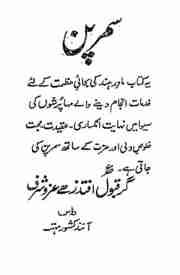 سمرپن
یہ کتاب مادرِ ہند کی بحالئ عظمت کے لئے
خدمات انجام دینے والے مہاپرشوں کی
سیوا میں نہایت انکساری۔ عقیدت۔ محبت
خلوصِ دلی اور عزت کے ساتھ سمرپن کی
جاتی ہے۔
گر قبول افتد زہے عز و شرف
داس
آنند کشور مہتہ